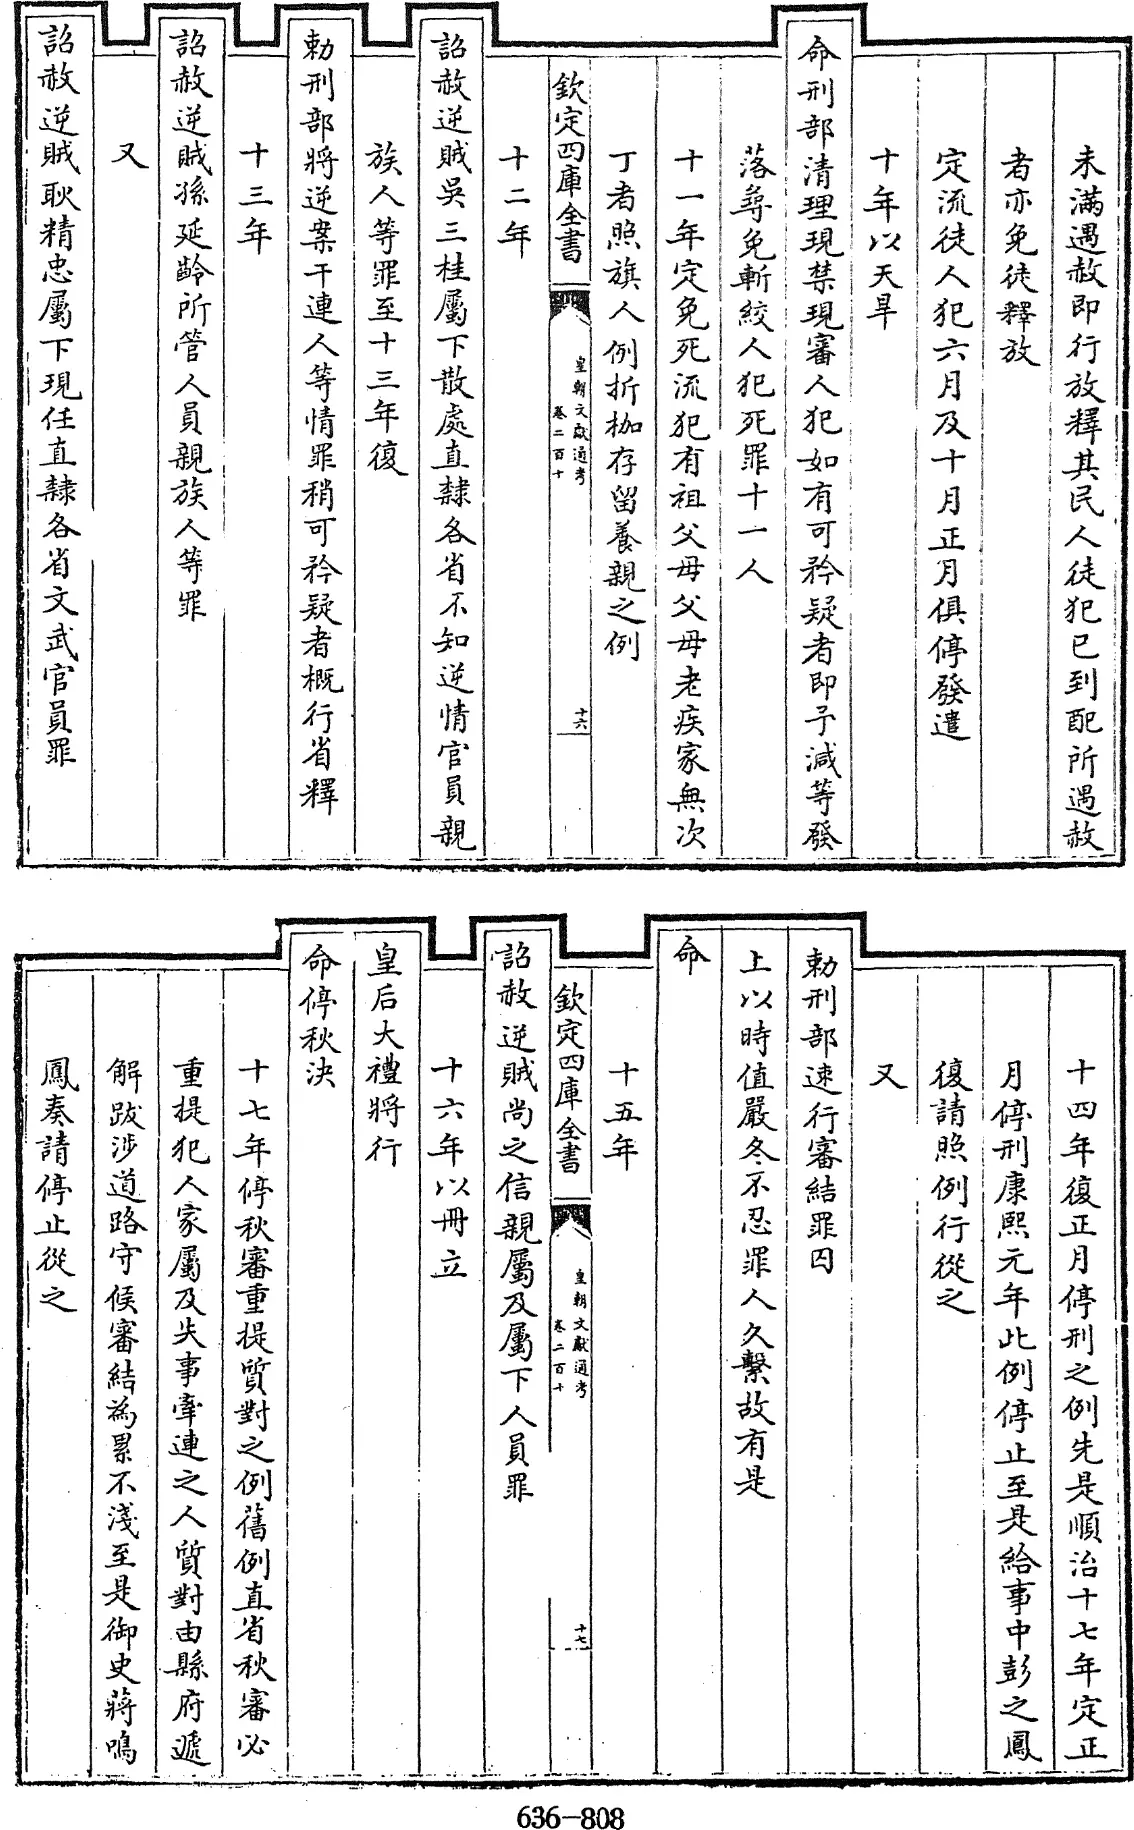 未滿遇赦即行放釋其民人徒犯已到配所遇赦
者亦免徒釋放
定流徒人犯六月及十月正月俱停發遣
十年以天旱
命刑部清理現禁現審人犯如有可矜疑者即予減等發
落尋免斬絞人犯死罪十一人
十一年定免死流犯有祖父母父母老疾家無次
丁者照旗人例折枷存留養親之例
欽定四庫全書
皇朝文獻通考
卷二百十
十六
十二年
詔赦逆賊吳三桂屬下散處直隸各省不知逆情官員親
族人等罪至十三年復
勅刑部將逆案干連人等情罪稍可矜疑者概行省釋
十三年
詔赦逆賊孫延齡所管人員親族人等罪
又
詔赦逆賊耿精忠屬下現任直隸各省文武官員罪
十四年復正月停刑之例先是順治十七年定正
月停刑康熙元年此例停止至是給事中彭之鳳
復請照例行從之
又
勅刑部速行審結罪囚
上以時值嚴冬不忍罪人久繫故有是
命
十五年
欽定四庫全書
皇朝文獻通考
卷二百十
十七
詔赦逆賊尚之信親屬及屬下人員罪
十六年以冊立
皇后大禮將行
命停秋決
十七年停秋審重提質對之例舊例直省秋審必
重提犯人家屬及失事牽連之人質對由縣府遞
解跋涉道路守候審結為累不淺至是御史蔣鳴
鳳奏請停止從之
636-808